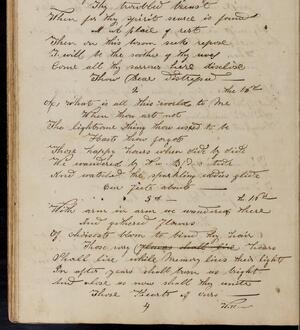 Thy troubled breast
When for thy spirit sense is found
A place of rest
Then on this bosom seek repose
I will be the soother of thy woes
Come all thy sorrows here disclose
Thou Dear Distressed
2 the 16th
O, what is all this world to Me
When thou art not
The lightsome thing thou used to be
Hast thou forgot
Those happy hours when side by side
We wandered by the tide
And watched the sparkling glide
Our feets about
3d the 16th
With arm in arm we wandered there
And gathered flowers
Of blossom to bind thy hair
Those rosy flowers shall live hours
Shall live while Memory lives their light
In after years shall from us bright
And close as now shall thy unite
Those Hearts of ours
4